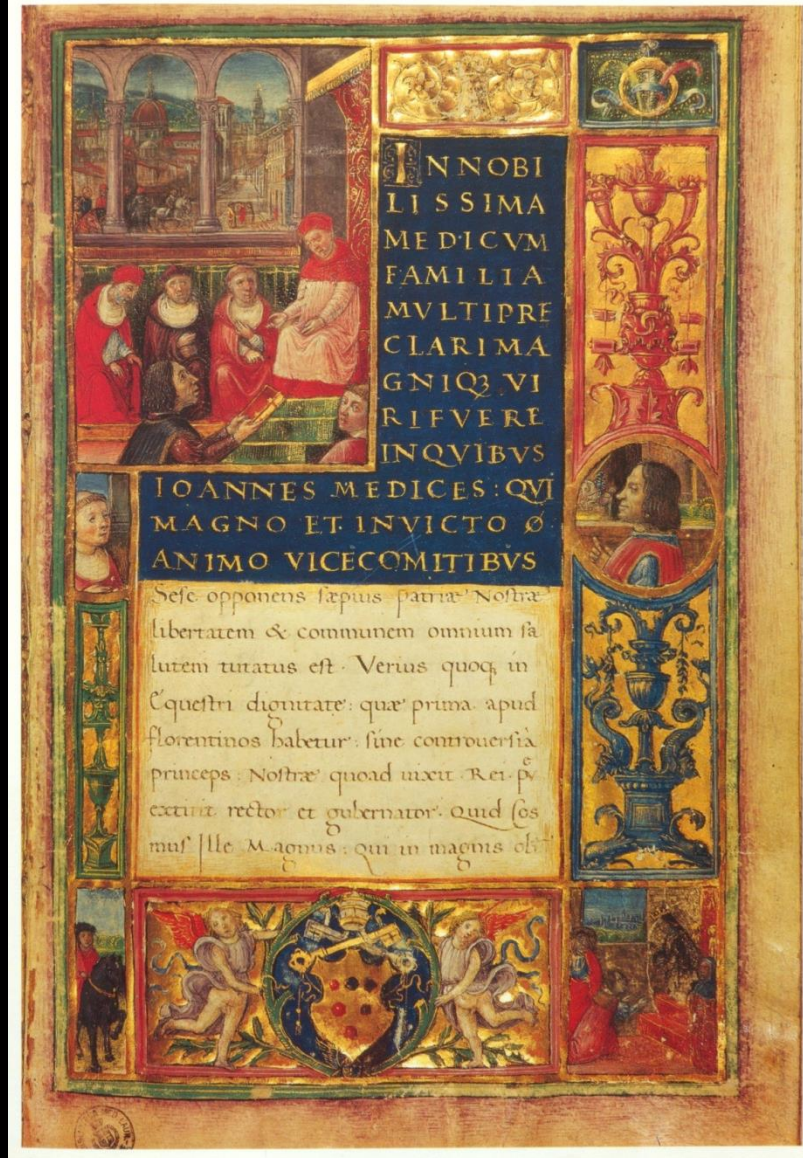 INNOBI
LISSIMA
MEDICVM
FAMILIA
MVLTIPRE
CLARIMA
GNIQꝫ VI
RIFVERE
INQVIBVS
IOANNES MEDICES: QVI
MAGNO ET INVICTO
ANIMO VICECOMITIBVS
Sese opponens sæpius patriæ Nostræ
libertatem & communem omnium sa
lutem tutatus est. Verius quoq, in
Equestri dignitate: quæ prima apud
florentinos habetur: sine controuersia
princeps: Nostræ quoad uixit Rei. p
extitit rector et gubernator. Quid Cos
mus Ille Magnus: qui in magnis